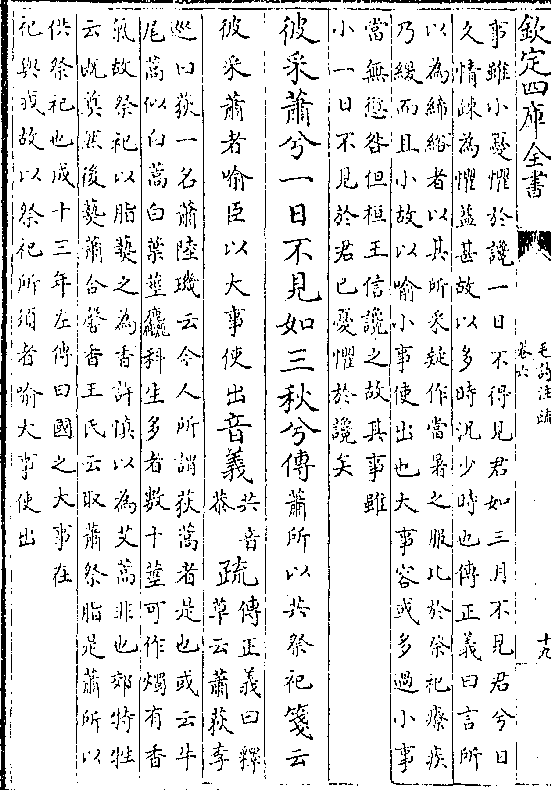 欽定四庫全書
毛詩注疏
卷六
十九
事雖小憂懼於讒一日不得見君如三月不見君兮日
久情疎為懼益甚故以多時況少時也傳正義曰言所
以為絺綌者以其所采疑作當暑之服比於祭祀療疾
乃緩而且小故以喻小事使出也大事容或多過小事
當無愆咎但桓王信讒之故其事雖
小一日不見於君已憂懼於讒矣
彼采蕭兮一日不見如三秋兮傳蕭所以共祭祀箋云
彼采蕭者喻臣以大事使出音義共音恭疏傳正義曰釋草云蕭荻李
巡曰荻一名蕭陸璣云今人所謂荻蒿者是也或云牛
尾蒿似白蒿白葉莖麤科生多者數十莖可作燭有香
氣故祭祀以脂爇之為香許慎以為艾蒿非也郊特牲
云既奠然後爇蕭合馨香王氏云取蕭祭脂是蕭所以
供祭祀也成十三年左傳曰國之大事在
祀與戎故以祭祀所須者喻大事使出